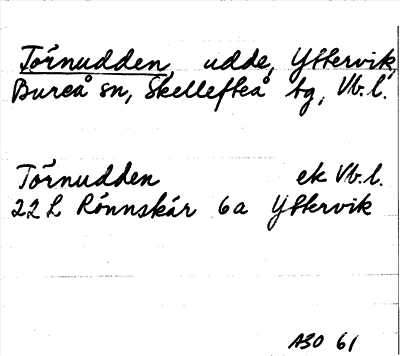 Törnudden, udde, Yttervik,
Bureå sn, Skellefteå tg, Vb.l.
Törnudden ek Vb.l.
22 L Rönnskär 6a Yttervik
ASO 61